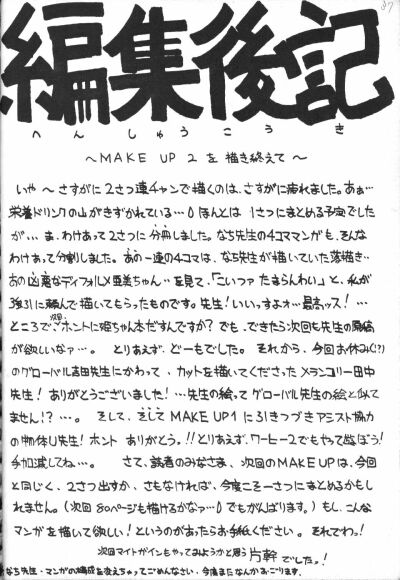 87
編集後記
へんしゅうこうき
～MAKE UP 2 を 描き終えて～
いや～さすがに2さつ連チャンで描くのは、さすがに疲れました。あぁ…
栄養ドリンクの山がきずかれている…0 ほんとは 1さつにまとめる予定でした
が…。ま、わけあって2さつに分冊しました。なち先生の4コママンガも、そんな
わけあって分割しました。あの一連の4コマは、なち先生が描いていた落描き…
あの凶悪なディフォルメ亜美ちゃん…を見て、「こいつァ たまらんわい」と、私が
強引に頼んで描いてもらったものです。先生!いいっすよォ…最高ッス!…
ところで次回、ホントに姫ちゃん本だすんですか?でも、できたら次回も先生の原稿
が欲しいなァ…。 とりあえず、どーもでした。それから、今回お休みく(!?)
のグローバル吉田先生にかわって、カットを描いてくださった メランコリー田中
先生!ありがとうございました!…先生の絵って グローバル先生の絵と似て
ません!?…。 そして、そして MAKE UP 1 に引きつづきアシスト協力
の物体U先生!ホント ありがとう。!!とりあえず、ワーヒー2でもやって遊ぼう!
手加減してね…。 さて、読者のみなさま、次回のMAKE UPは、今回
と同じく、2さつ出すか、さもなければ、今度こそ一さつにまとめるかもし
れません。(次回 80ページも描けるかなァ…0 でもがんばります。)もし、こんな
マンガを描いて欲しい!というのがあったらお手紙ください。それでわっ!
次回マイトガインもやってみようかと思う 片幹 でした。!
なち先生・マンガの構成を変えちゃってごめんなさい、今度またなんかおごります。